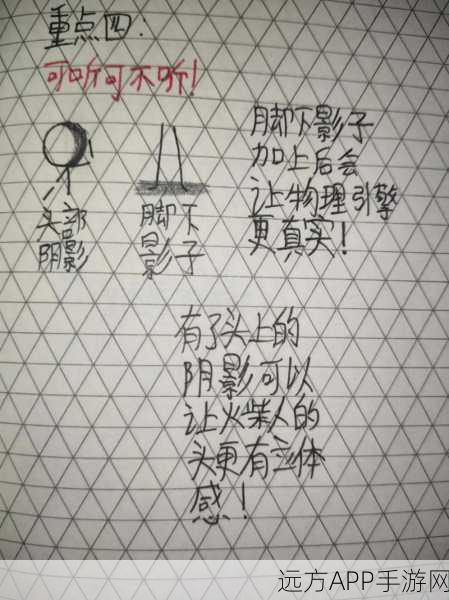 重点四:
可听可不听!
头部
阴影
脚下
影子
脚下影子
加上后会
让物理引擎
更真实!
有了头上的
阴影可以
让火柴人的
头更有立体
感!
远方APP手游网